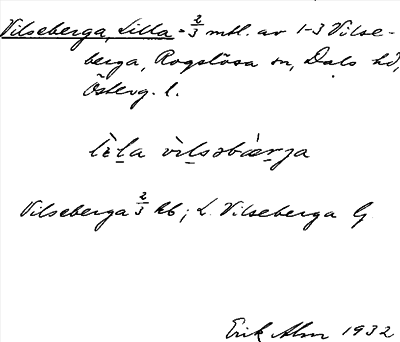 Vilseberga, Lilla - 2/3 mtl. av 1-3 Vilse-
berga, Rogslösa sn, Dals hd,
Österg. l.
lìla vìlsəbæ̀rja
Vilseberga 2/3 kb; L. Vilseberga G
Erik Alm 1932